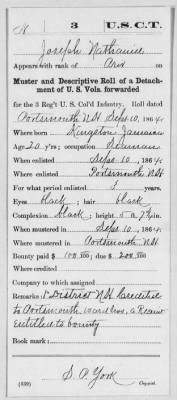 N 3 U.S.C.T.
Joseph Nathaniel
Appears with rank of Pvt on
Muster and Descriptive Roll of a Detach-
ment of U. S. Vols. forwarded
for the 3 Reg't U. S. Col'd Infantry. Roll dated
Portsmouth NH Sept. 10, 1864.
Where born Kingston Jamaica
Age 20 y'rs; occupation Seaman
When enlisted Sept. 10, 1864.
Where enlisted Portsmouth NH
For what period enlisted years.
Eyes black; hair black
Complexion black; height 5 ft. 7½ in.
When mustered in Sept. 10, 1864.
Where mustered in Portsmouth NH
Bounty paid $ 100 00/100; due $ 200 00/100
Where credited
Company to which assigned
Remarks: District NH Credited
to Portsmouth, ward two, a Recruit
Entitled to bounty
Book mark:
(339) S. P. York Copyist.